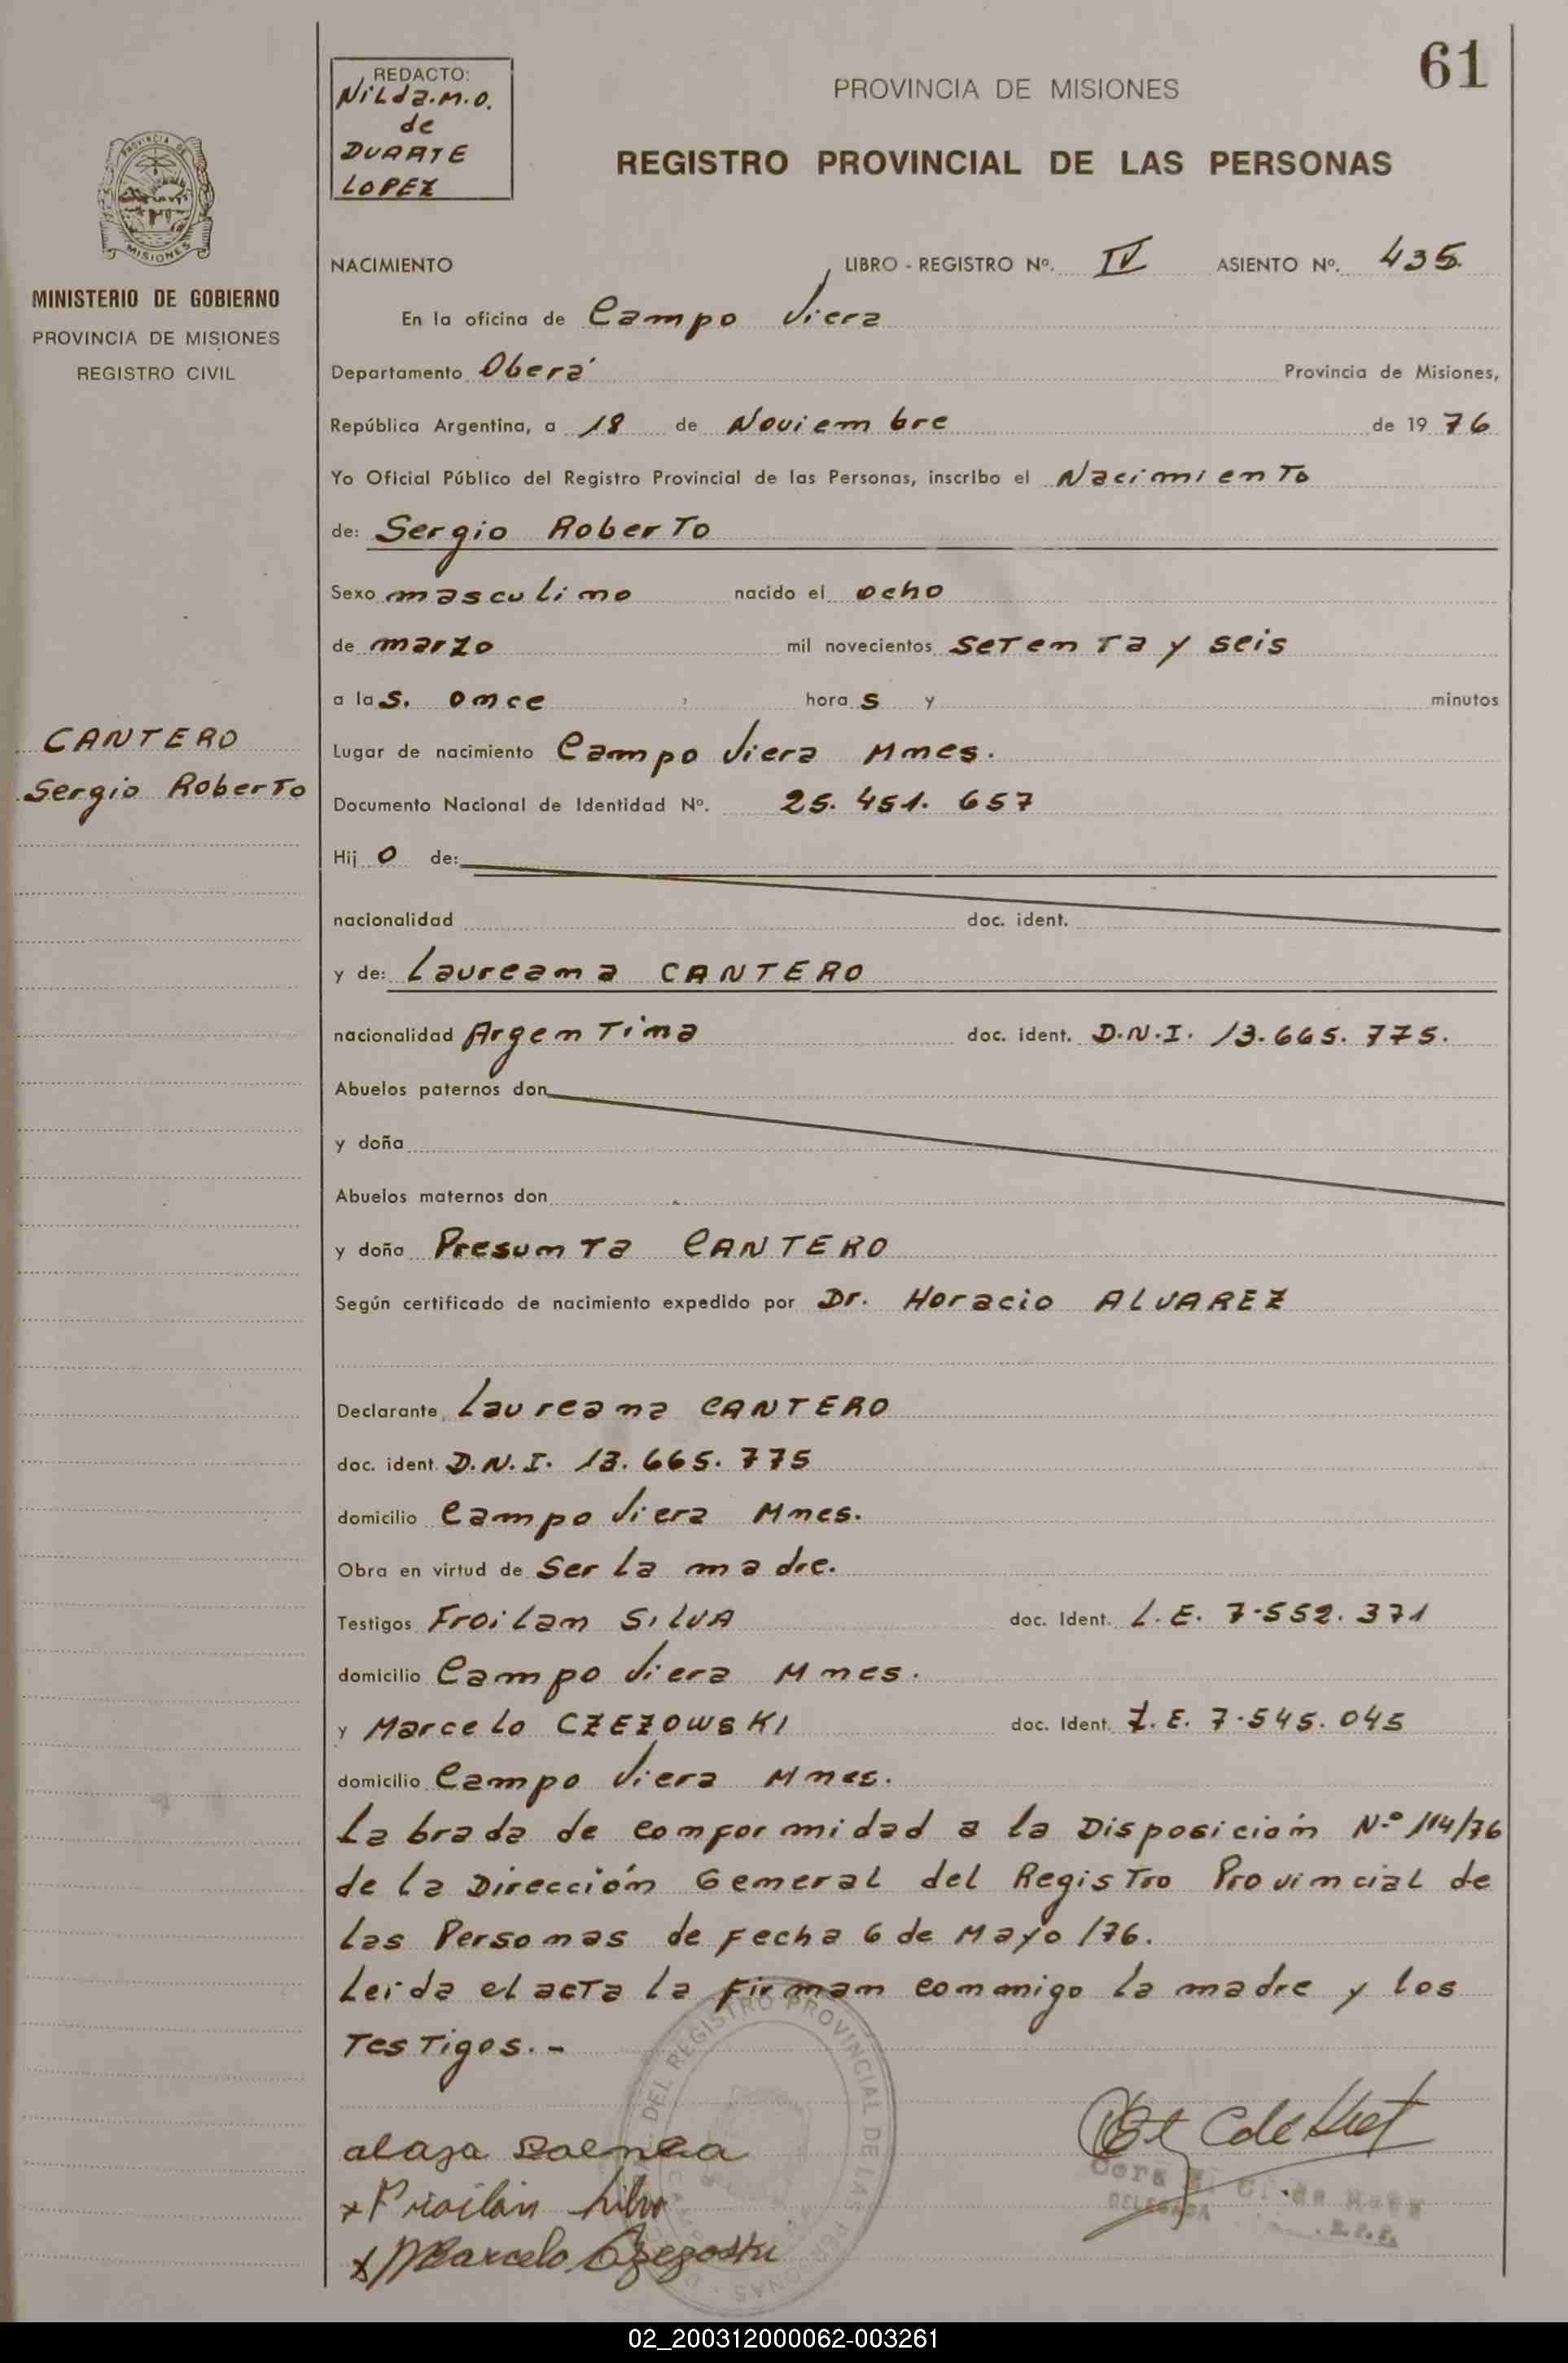 61
REDACTO:
Nilda.M.O.
de
DUARTE
LOPEZ
PROVINCIA DE MISIONES
REGISTRO PROVINCIAL DE LAS PERSONAS
PROVINCIA DE
MISIONES
MINISTERIO DE GOBIERNO
PROVINCIA DE MISIONES
REGISTRO CIVIL
CANTERO
Sergio Roberto
NACIMIENTO LIBRO - REGISTRO Nº. IV ASIENTO Nº. 435.
En la oficina de Campo Viera
Departamento Oberá Provincia de Misiones,
República Argentina, a 18 de Noviembre de 19 76
Yo Oficial Público del Registro Provincial de las Personas, inscribo el Nacimiento
de: Sergio Roberto
Sexo masculino nacido el ocho
de marzo mil novecientos setenta y seis
a las. once horas y minutos
Lugar de nacimiento Campo Viera Mnes.
Documento Nacional de Identidad Nº. 25.451.657
Hijo de:
nacionalidad doc. ident.
y de: Laureana CANTERO
nacionalidad Argentina doc. ident. D.N.I. 13.665.775.
Abuelos paternos don
y doña
Abuelos maternos don
y doña Presunta CANTERO
Según certificado de nacimiento expedido por Dr. Horacio ALVAREZ
Declarante Laureana CANTERO
doc. ident. D.N.I. 13.665.775
domicilio Campo Viera Mnes.
Obra en virtud de ser la madre.
Testigos Froilan SILVA doc. Ident. L.E. 7.552.371
domicilio Campo Viera Mnes.
y Marcelo CZEZOWSKI doc. Ident. L.E. 7.545.045
domicilio Campo Viera Mnes.
Labrada de conformidad a la Disposición Nº 114/76
de la Dirección General del Registro Provincial de
las Personas de fecha 6 de Mayo /76.
Leida el acta la firman conmigo la madre y los
Testigos.-
x Froilan Silva
x Marcelo Czezoski
DEL REGISTRO PROVINCIAL DE LAS PERSONAS
DELEGADA
02_200312000062-003261